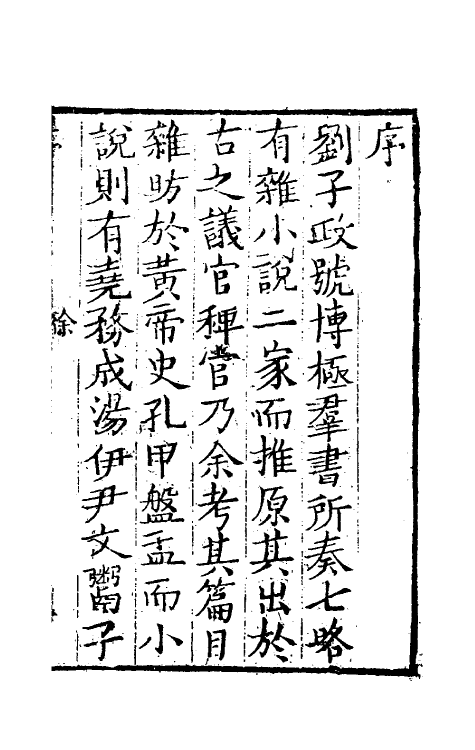 序
劉子政號博極羣書所奏七略
有雜小說二家而推原其出於
古之議官稗官乃余考其篇目
雜昉於黃帝史孔甲盤盂而小
說則有堯務成湯伊尹文鬻子
序
餘